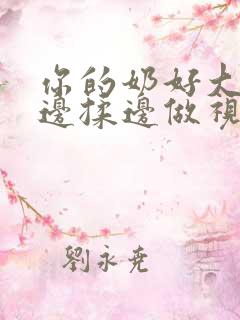 你的奶好大
邊揉邊做視
劉永堯